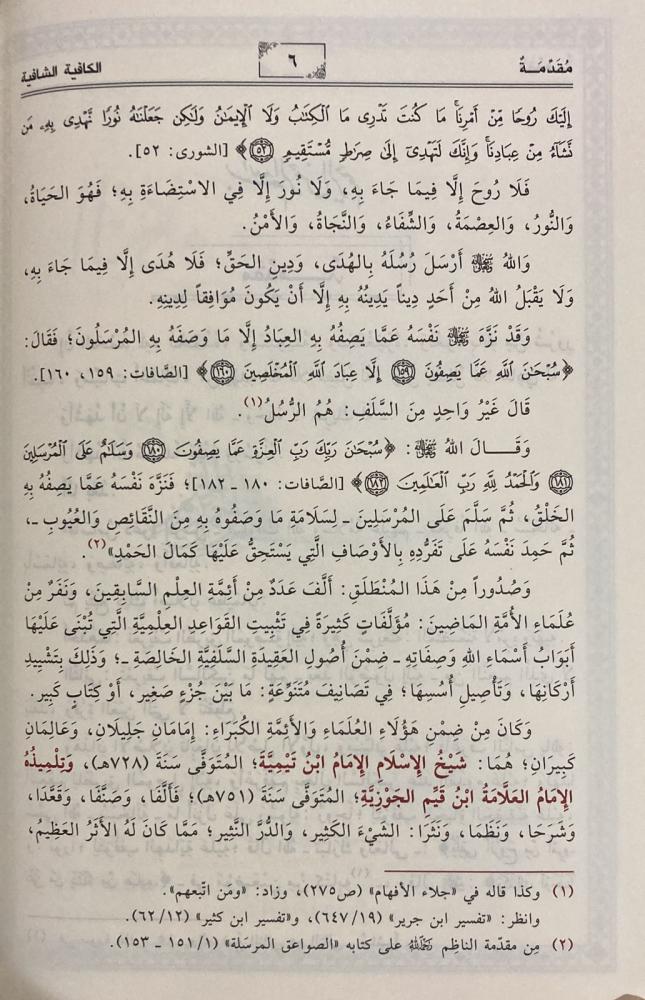 مُقَدِّمَـةٌ
٦
الكافية الشافية
إِلَيْكَ رُوحًا مِّنْ أَمْرِنَا ۚ مَا كُنتَ تَدْرِى مَا ٱلْكِتَـٰبُ وَلَا ٱلْإِيمَـٰنُ وَلَـٰكِن جَعَلْنَـٰهُ نُورًا نَّهْدِى بِهِۦ مَن
نَّشَآءُ مِنْ عِبَادِنَا ۚ وَإِنَّكَ لَتَهْدِىٓ إِلَىٰ صِرَٰطٍ مُّسْتَقِيمٍ ٥٢﴾ [الشورى: ٥٢].
فَلَا رُوحَ إِلَّا فِيمَا جَاءَ بِهِ، وَلَا نُورَ إِلَّا فِي الاسْتِضَاءَةِ بِهِ؛ فَهُوَ الحَيَاةُ،
وَالنُّورُ، وَالعِصْمَةُ، وَالشِّفَاءُ، وَالنَّجَاةُ، وَالأَمْنُ.
وَاللهُ ﷻ أَرْسَلَ رُسُلَهُ بِالهُدَى، وَدِينِ الحَقِّ؛ فَلَا هُدَى إِلَّا فِيمَا جَاءَ بِهِ،
وَلَا يَقْبَلُ اللهُ مِنْ أَحَدٍ دِيناً يَدِينُهُ بِهِ إِلَّا أَنْ يَكُونَ مُوَافِقاً لِدِينِهِ.
وَقَدْ نَزَّهَ ﷻ نَفْسَهُ عَمَّا يَصِفُهُ بِهِ العِبَادُ إِلَّا مَا وَصَفَهُ بِهِ المُرْسَلُونَ؛ فَقَالَ:
﴿سُبْحَـٰنَ ٱللَّهِ عَمَّا يَصِفُونَ ١٥٩ إِلَّا عِبَادَ ٱللَّهِ ٱلْمُخْلَصِينَ ١٦٠﴾ [الصَّافات: ١٥٩، ١٦٠].
قَالَ غَيْرُ وَاحِدٍ مِنَ السَّلَفِ: هُمُ الرُّسُلُ(١).
وَقَـــالَ اللهُ ﷻ: ﴿سُبْحَـٰنَ رَبِّكَ رَبِّ ٱلْعِزَّةِ عَمَّا يَصِفُونَ ١٨٠ وَسَلَـٰمٌ عَلَى ٱلْمُرْسَلِينَ
١٨١ وَٱلْحَمْدُ لِلَّهِ رَبِّ ٱلْعَـٰلَمِينَ ١٨٢﴾ [الصَّافات: ١٨٠ ـ ١٨٢]؛ فَنَزَّهَ نَفْسَهُ عَمَّا يَصِفُهُ بِهِ
الخَلْقُ، ثُمَّ سَلَّمَ عَلَى المُرْسَلِينَ ـ لِسَلَامَةِ مَا وَصَفُوهُ بِهِ مِنَ النَّقَائِصِ وَالعُيُوبِ ـ،
ثُمَّ حَمِدَ نَفْسَهُ عَلَى تَفَرُّدِهِ بِالأَوْصَافِ الَّتِي يَسْتَحِقُّ عَلَيْهَا كَمَالَ الحَمْدِ»(٢).
وَصُدُوراً مِنْ هَذَا المُنْطَلَقِ: أَلَّفَ عَدَدٌ مِنْ أَئِمَّةِ العِلْمِ السَّابِقِينَ، وَنَفَرٌ مِنْ
عُلَمَاءِ الأُمَّةِ المَاضِينَ: مُؤَلَّفَاتٍ كَثِيرَةً فِي تَثْبِيتِ القَوَاعِدِ العِلْمِيَّةِ الَّتِي تُبْنَى عَلَيْهَا
أَبْوَابُ أَسْمَاءِ اللهِ وَصِفَاتِهِ ـ ضِمْنَ أُصُولِ العَقِيدَةِ السَّلَفِيَّةِ الخَالِصَةِ ـ؛ وَذَلِكَ بِتَشْيِيدِ
أَرْكَانِهَا، وَتَأْصِيلِ أُسُسِهَا؛ فِي تَصَانِيفَ مُتَنَوِّعَةٍ: مَا بَيْنَ جُزْءٍ صَغِير، أَوْ كِتَابٍ كَبِير.
وَكَانَ مِنْ ضِمْنِ هَؤُلَاءِ العُلَمَاءِ وَالأَئِمَّةِ الكُبَرَاءِ: إِمَامَانِ جَلِيلَانِ، وَعَالِمَانِ
كَبِيرَانِ؛ هُمَا: شَيْخُ الإِسْلَامِ الإِمَامُ ابْنُ تَيْمِيَّةَ؛ المُتَوَفَّى سَنَةَ (٧٢٨هـ)، وَتِلْمِيذُهُ
الإِمَامُ العَلَّامَةُ ابْنُ قَيِّمِ الجَوْزِيَّةِ؛ المُتَوَفَّى سَنَةَ (٧٥١هـ)؛ فَأَلَّفَا، وَصَنَّفَا، وَقَعَّدَا،
وَشَرَحَا، وَنَظَمَا، وَنَثَرَا: الشَّيْءَ الكَثِير، وَالدُّرَّ النَّثِير؛ مَمَّا كَانَ لَهُ الأَثَرُ العَظِيمُ،
(١) وكذا قاله في «جلاء الأفهام» (ص٢٧٥)، وزاد: «ومَن اتّبعهم».
وانظر: «تفسير ابن جرير» (٦٤٧/١٩)، و«تفسير ابن كثير» (٦٢/١٢).
(٢) مِن مقدّمة الناظِم رَحِمَهُ اللهُ على كتابه «الصواعق المرسَلة» (١٥١/١ ـ ١٥٣).